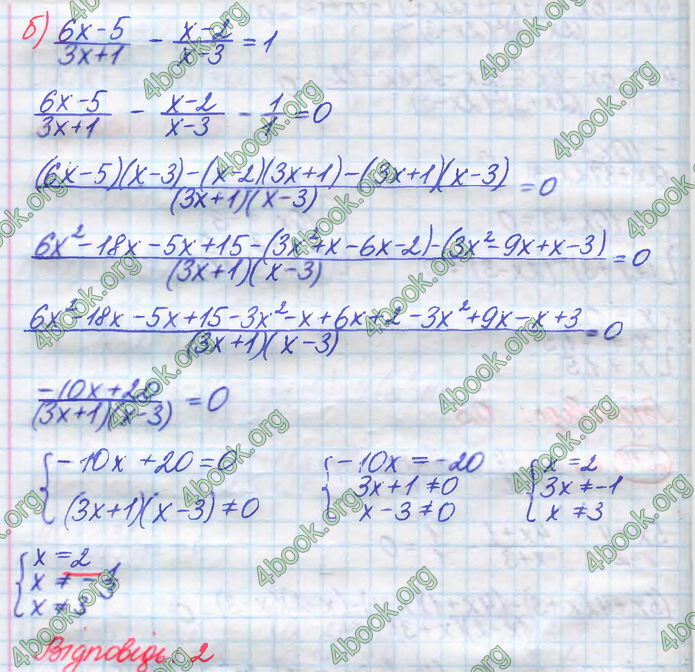 б) (6x-5)/(3x+1) - (x-2)/(x-3) = 1
(6x-5)/(3x+1) - (x-2)/(x-3) - 1/1 = 0
((6x-5)(x-3)-(x-2)(3x+1)-(3x+1)(x-3))/((3x+1)(x-3)) = 0
(6x²-18x-5x+15-(3x²+x-6x-2)-(3x²-9x+x-3))/((3x+1)(x-3)) = 0
(6x²-18x-5x+15-3x²-x+6x+2-3x²+9x-x+3)/((3x+1)(x-3)) = 0
(-10x+20)/((3x+1)(x-3)) = 0
{ -10x+20=0
(3x+1)(x-3)≠0
{ -10x=-20
3x+1≠0
x-3≠0
{ x=2
3x≠-1
x≠3
{ x=2
x≠-1/3
x≠3
Відповідь 2
4book.org